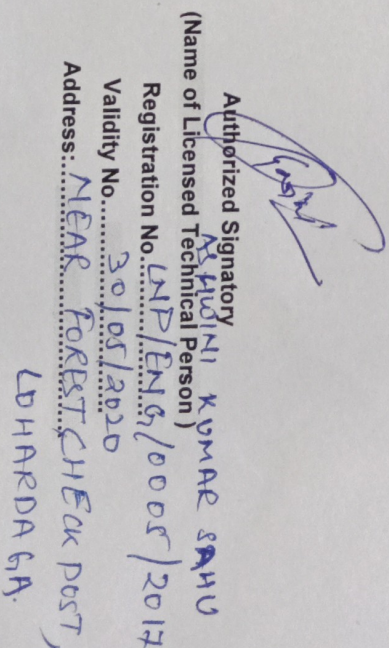 Authorized Signatory
ASHWINI KUMAR SAHU
(Name of Licensed Technical Person)
Registration No....LNP/ENG/0005/2017
Validity No......30/05/2020
Address:..NEAR FOREST CHECK POST,
LOHARDAGA.